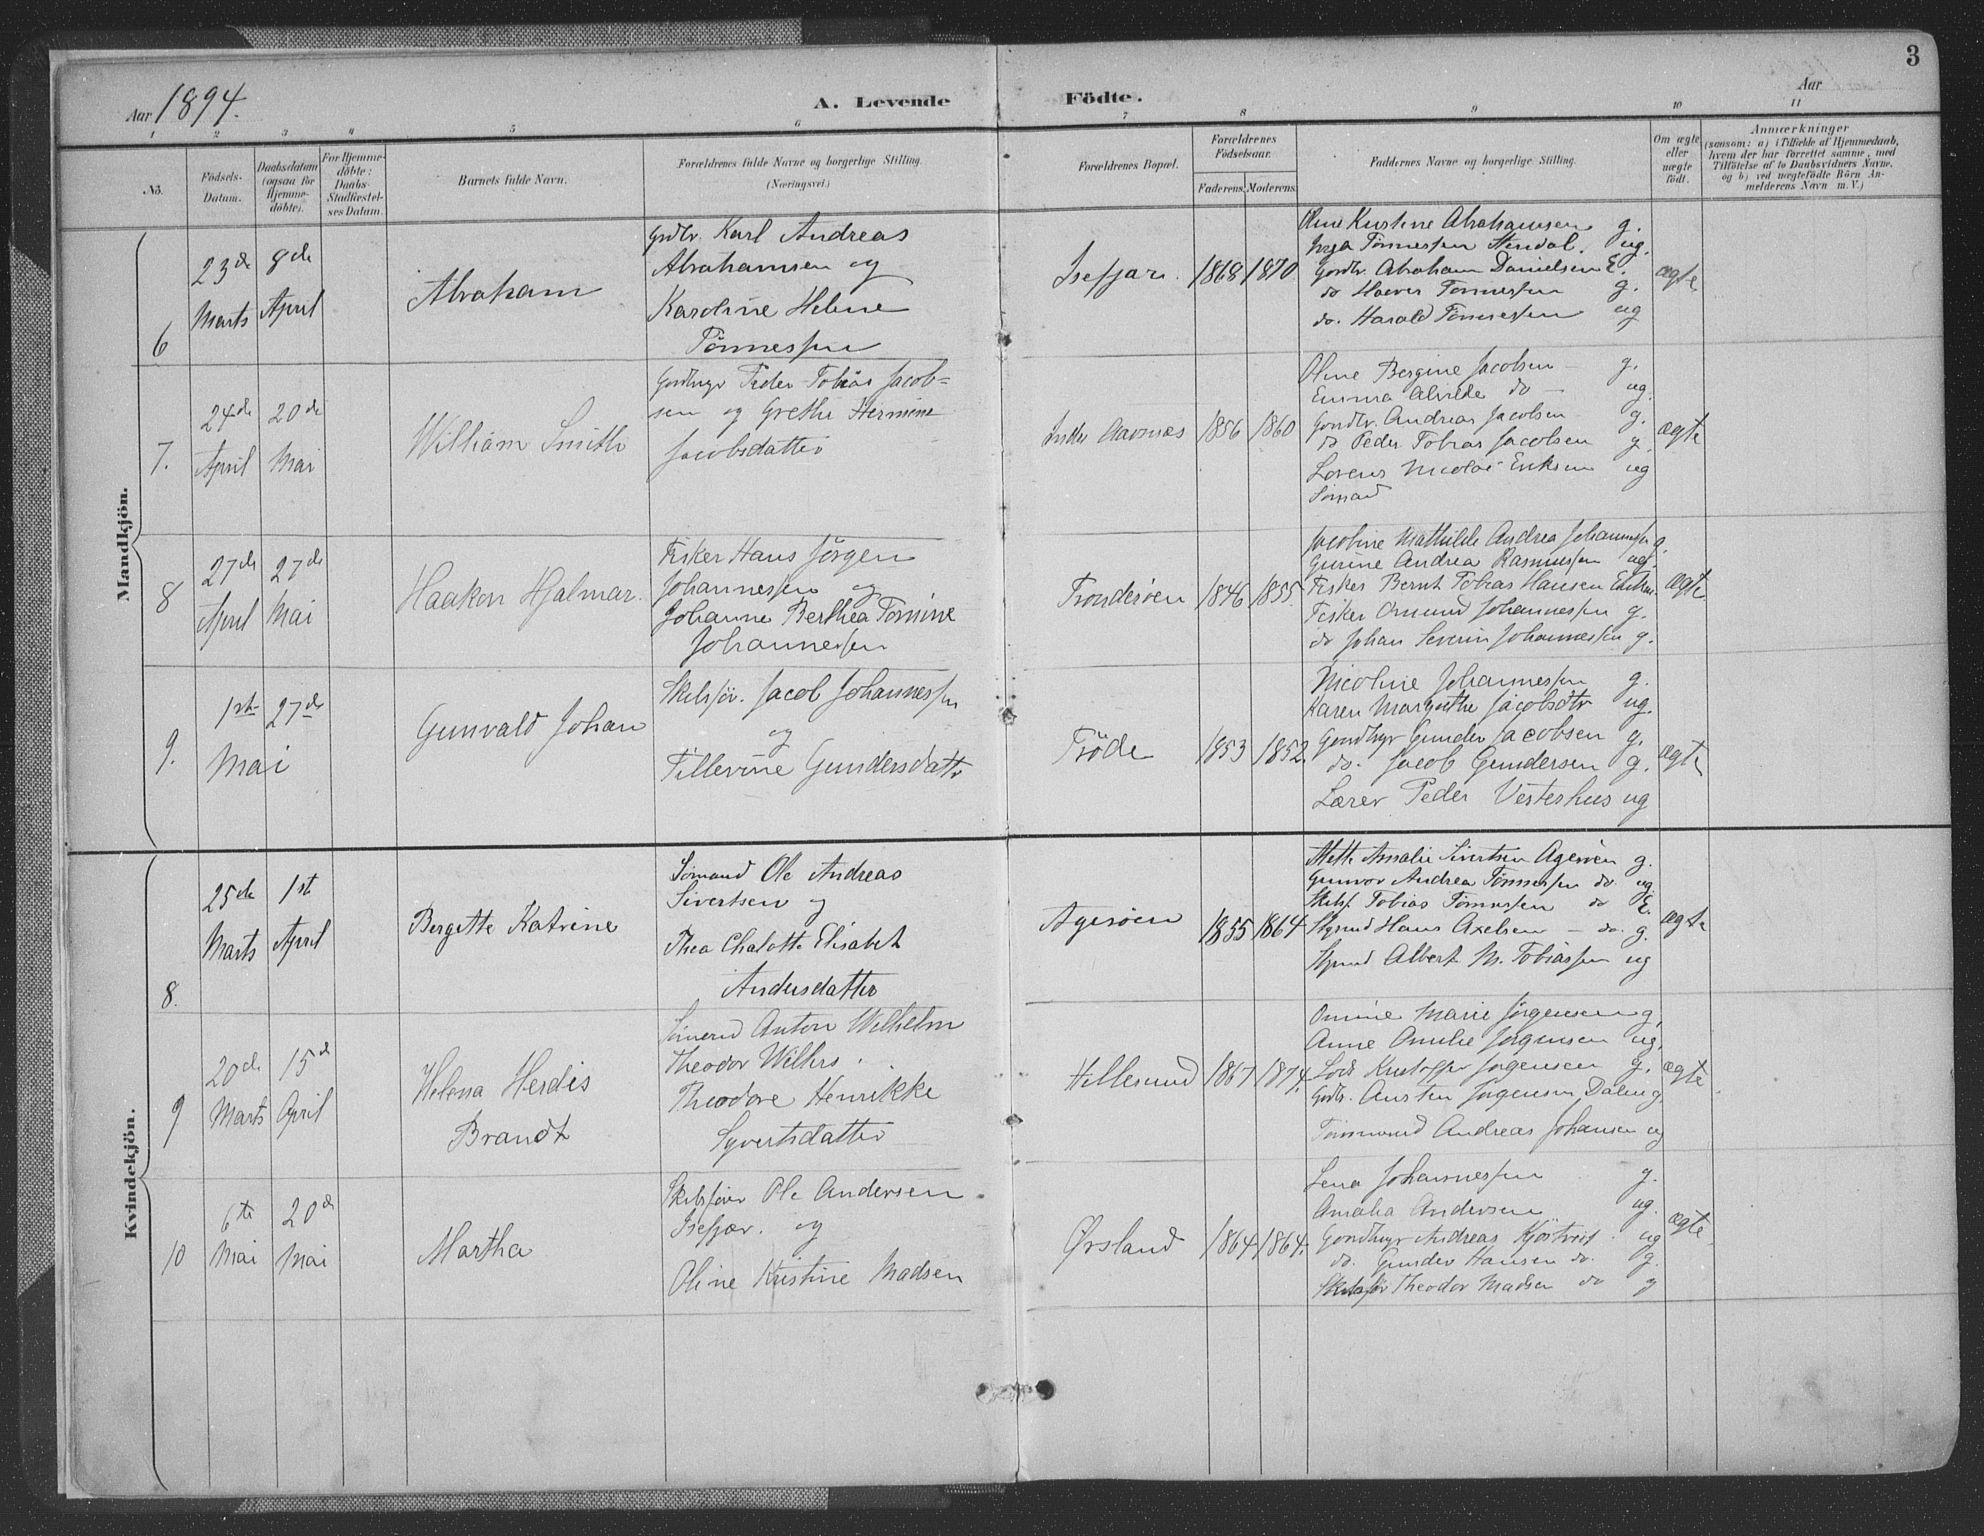 3
Aar 1894.
A. Levende
Födte.
Aar
1 2 3 4 5 6 7 8 9 10 11
No.
Födsels-Datum.
Daabsdatum (ogsaa for Hjemme-döbte).
For Hjemme-döbte: Daabs-Stadfæstel-ses Datum.
Barnets fulde Navn.
Forældrenes fulde Navne og borgerlige Stilling.
(Næringsvei.)
Forældrenes Bopæl.
Forældrenes Födselsaar.
Faderens. Moderens.
Faddernes Navne og borgerlige Stilling.
Om ægte eller uægte födt.
Anmærkninger
(saasom: a) i Tilfælde af Hjemmedaab,
hvem der har forrettet samme, med
Tilföielse af to Daabsvidners Navne,
og b) ved uægtefödte Börn An-
melderens Navn m. V.)
Mandkjön.
6
23de Marts
8de April
Abraham
Grdbr. Karl Andreas
Abrahamsen og
Karoline Helene
Tönnessen
Isefjær.
1868 1870
Oline Kristine Abrahamsen g.
Inga Tönnessen Stendal. ug.
Gordbr. Abraham Danielsen E.
do Tönnessen g.
do. Harald Tönnessen ug
ægte
7.
24de April
20de Mai
William Smith
Peder Tobias Jacob=
sen og Grethe Hermine
Jacobsdatter
Indre Aavnæs
1856 1860
Oline Bergine Jacobsen — g.
Emma Alvilde do — ug.
Gordbr. Andreas Jacobsen g.
do Peder Tobias Jacobsen g.
Lorens Nicolai Eriksen ug
Sömand
ægte
8
27de April
27de Mai
Haakon Hjalmar.
Fisker Hans Jörgen
Johannessen og
Johanne Berthea Tomine
Johannessen
Tronderöen
1846 1855.
Jacobine Mathilde Andrea Johannessen g.
Gurine Andrea Rasmussen ug.
Fisker Bernt Tobias Hansen
Fisker Omund Johannessen g.
do Johan Severin Johannessen g.
ægte.
9.
1ste Mai
27de
Gunvald Johan
Skibsför. Jacob Johannessen
og
Tillevine Gundersdatter
Tröde
1853 1852.
Nicoline Johannessen g.
Karen Margrethe Jacobsdtr ug.
Gunder Jacobsen g.
do. Jacob Gundersen g.
Lærer Peder Vesterhus ug
ægte
Kvindekjön.
8.
25de Marts
1st April
Bergitte Katrine
Sömand Ole Andreas
Sivertsen og
Thea Chalotte Elisabet
Andersdatter
Ageröen
1855 1864
Mette Amalie Sivertsen Ageröen g.
Gunvor Andrea Tönnessen do. ug.
Skibsf. Tobias Tönnessen do E.
Styrmd Hans Axelsen — do. g.
Styrmd Albert M. Tobiassen ug
ægte
9
20de Marts
15d April
Helena Herdis
Brandt
Sömand Anton Wilhelm
Theodor Wilhs.
Theodore Henrikke
Syvertsdatter
Hillesund
1867 1874.
Omine Marie Jörgensen g.
Anne Omelie Jörgensen ug.
Lods Kristoffer Jörgensen g.
Gdbr. Austen Jörgensen Dalen g
Tömmermd Andreas Johansen ug
ægte.
10
6te Mai
20de Mai
Martha
Skibsförer Ole Andersen
Isefjær. og
Oline Kristine Madsen
Örsland
1864 1864.
Lena Johannessen g.
Amalia Andersen ug.
Andreas Kjöstvedt ug
do. Gunder Hansen do. g.
Skibsför Theodor Madsen do g
ægte.